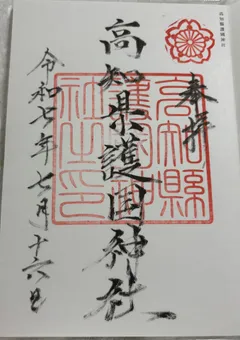 高知縣護國神社
奉拝
高知県護国神社
高知縣護國神社之印
令和七年七月十六日